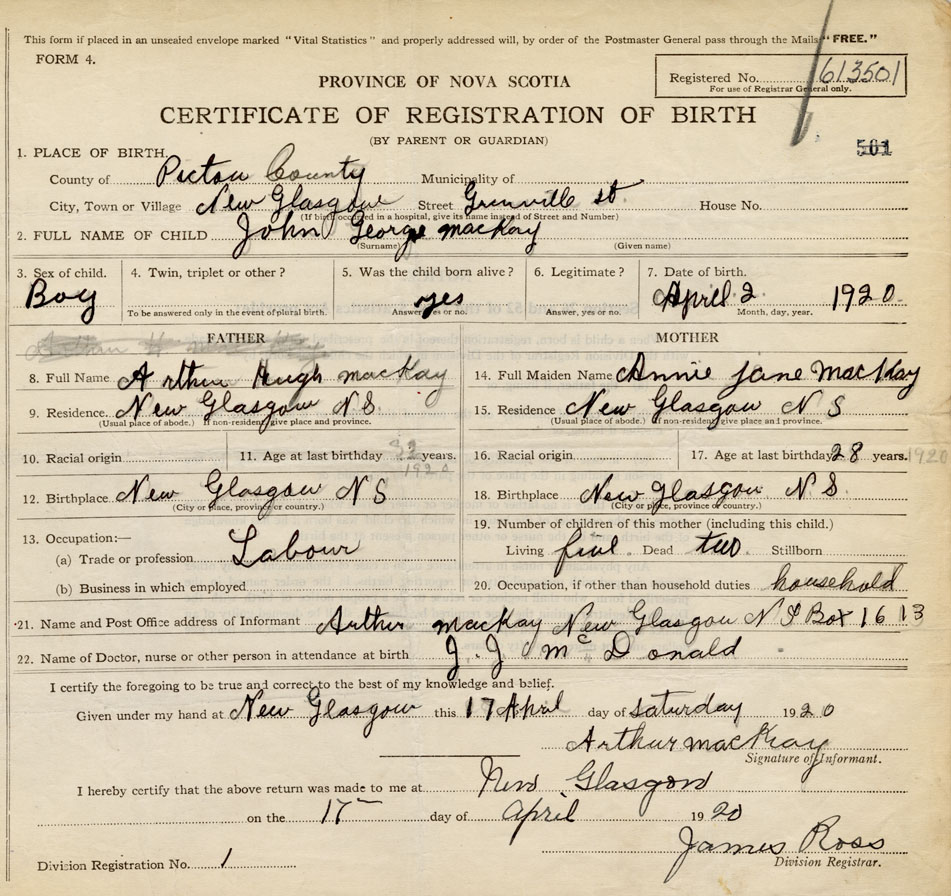 This form if placed in an unsealed envelope marked "Vital Statistics" and properly addressed will, by order of the Postmaster General pass through the Mails "FREE."
FORM 4.
Registered No. 613501
For use of Registrar General only.
PROVINCE OF NOVA SCOTIA
CERTIFICATE OF REGISTRATION OF BIRTH
(BY PARENT OR GUARDIAN)
501
1. PLACE OF BIRTH.
County of Pictou County Municipality of
City, Town or Village New Glasgow Street Grinville st. House No.
(If birth occurred in a hospital, give its name instead of Street and Number)
2. FULL NAME OF CHILD John George macKay
(Surname) (Given name)
3. Sex of child. 4. Twin, triplet or other? 5. Was the child born alive? 6. Legitimate? 7. Date of birth.
Boy yes April 2 1920
To be answered only in the event of plural birth. Answer yes or no. Answer, yes or no. Month, day, year.
FATHER MOTHER
8. Full Name Arthur Hugh macKay 14. Full Maiden Name Annie Jane MacKay
9. Residence New Glasgow N S. 15. Residence New Glasgow N S
(Usual place of abode.) If non-resident, give place and province. (Usual place of abode.) If non-resident, give place and province.
10. Racial origin 11. Age at last birthday 32 years. 16. Racial origin 17. Age at last birthday 28 years. 1920
1920
12. Birthplace New Glasgow N S 18. Birthplace New Glasgow N. S.
(City or place, province or country.) (City or place, province or country.)
13. Occupation:— 19. Number of children of this mother (including this child.)
(a) Trade or profession Labour Living five. Dead two. Stillborn
(b) Business in which employed 20. Occupation, if other than household duties household
21. Name and Post Office address of Informant Arthur macKay New Glasgow N S Box 1613
22. Name of Doctor, nurse or other person in attendance at birth J. J. McDonald
I certify the foregoing to be true and correct to the best of my knowledge and belief.
Given under my hand at New Glasgow this 17 April day of saturday 1920
Arthur macKay
Signature of Informant.
I hereby certify that the above return was made to me at New Glasgow
on the 17 day of April 1920
James Ross
Division Registrar.
Division Registration No. 1